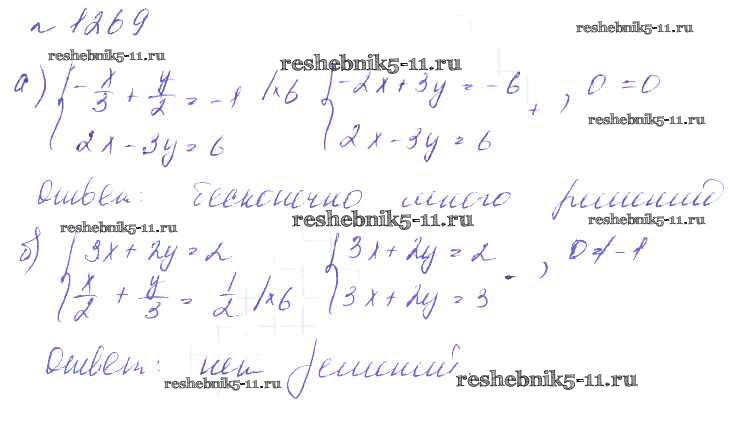 № 1269
reshebnik5-11.ru
reshebnik5-11.ru
reshebnik5-11.ru
а) { -x/3 + y/2 = -1 |×6 { -2x+3y = -6 + , 0=0
2x-3y=6 2x-3y=6
reshebnik5-11.ru
Ответ: бесконечно много решений
reshebnik5-11.ru
reshebnik5-11.ru
reshebnik5-11.ru
б) { 3x+2y=2 { 3x+2y=2 - , 0≠-1
x/2 + y/3 = 1/2 |×6 3x+2y=3
Ответ: нет решений.
reshebnik5-11.ru
reshebnik5-11.ru